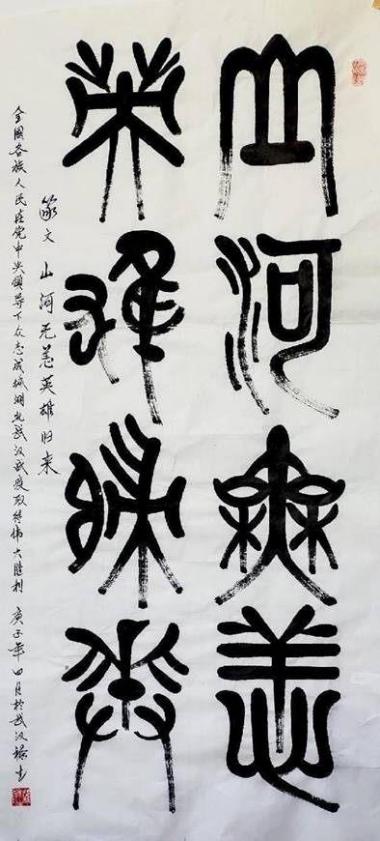 山河無恙
英雄歸來
篆文 山河无恙英雄归来
全國各族人民在党中央領导下众志成城湖北武汉疫取得伟大胜利 庚子年四月於武汉